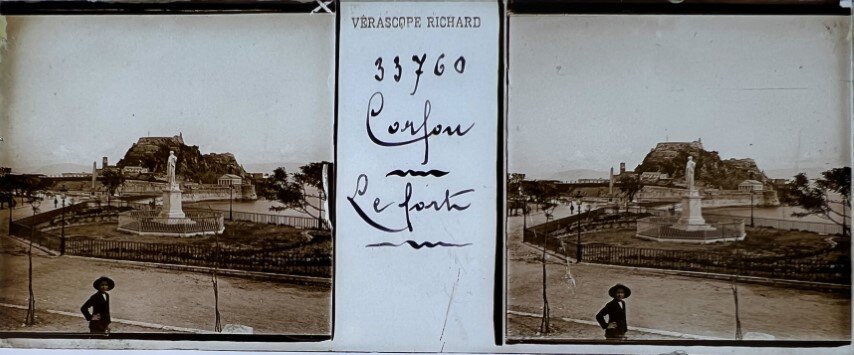 VÉRASCOPE RICHARD
33760
Corfou
Le fort